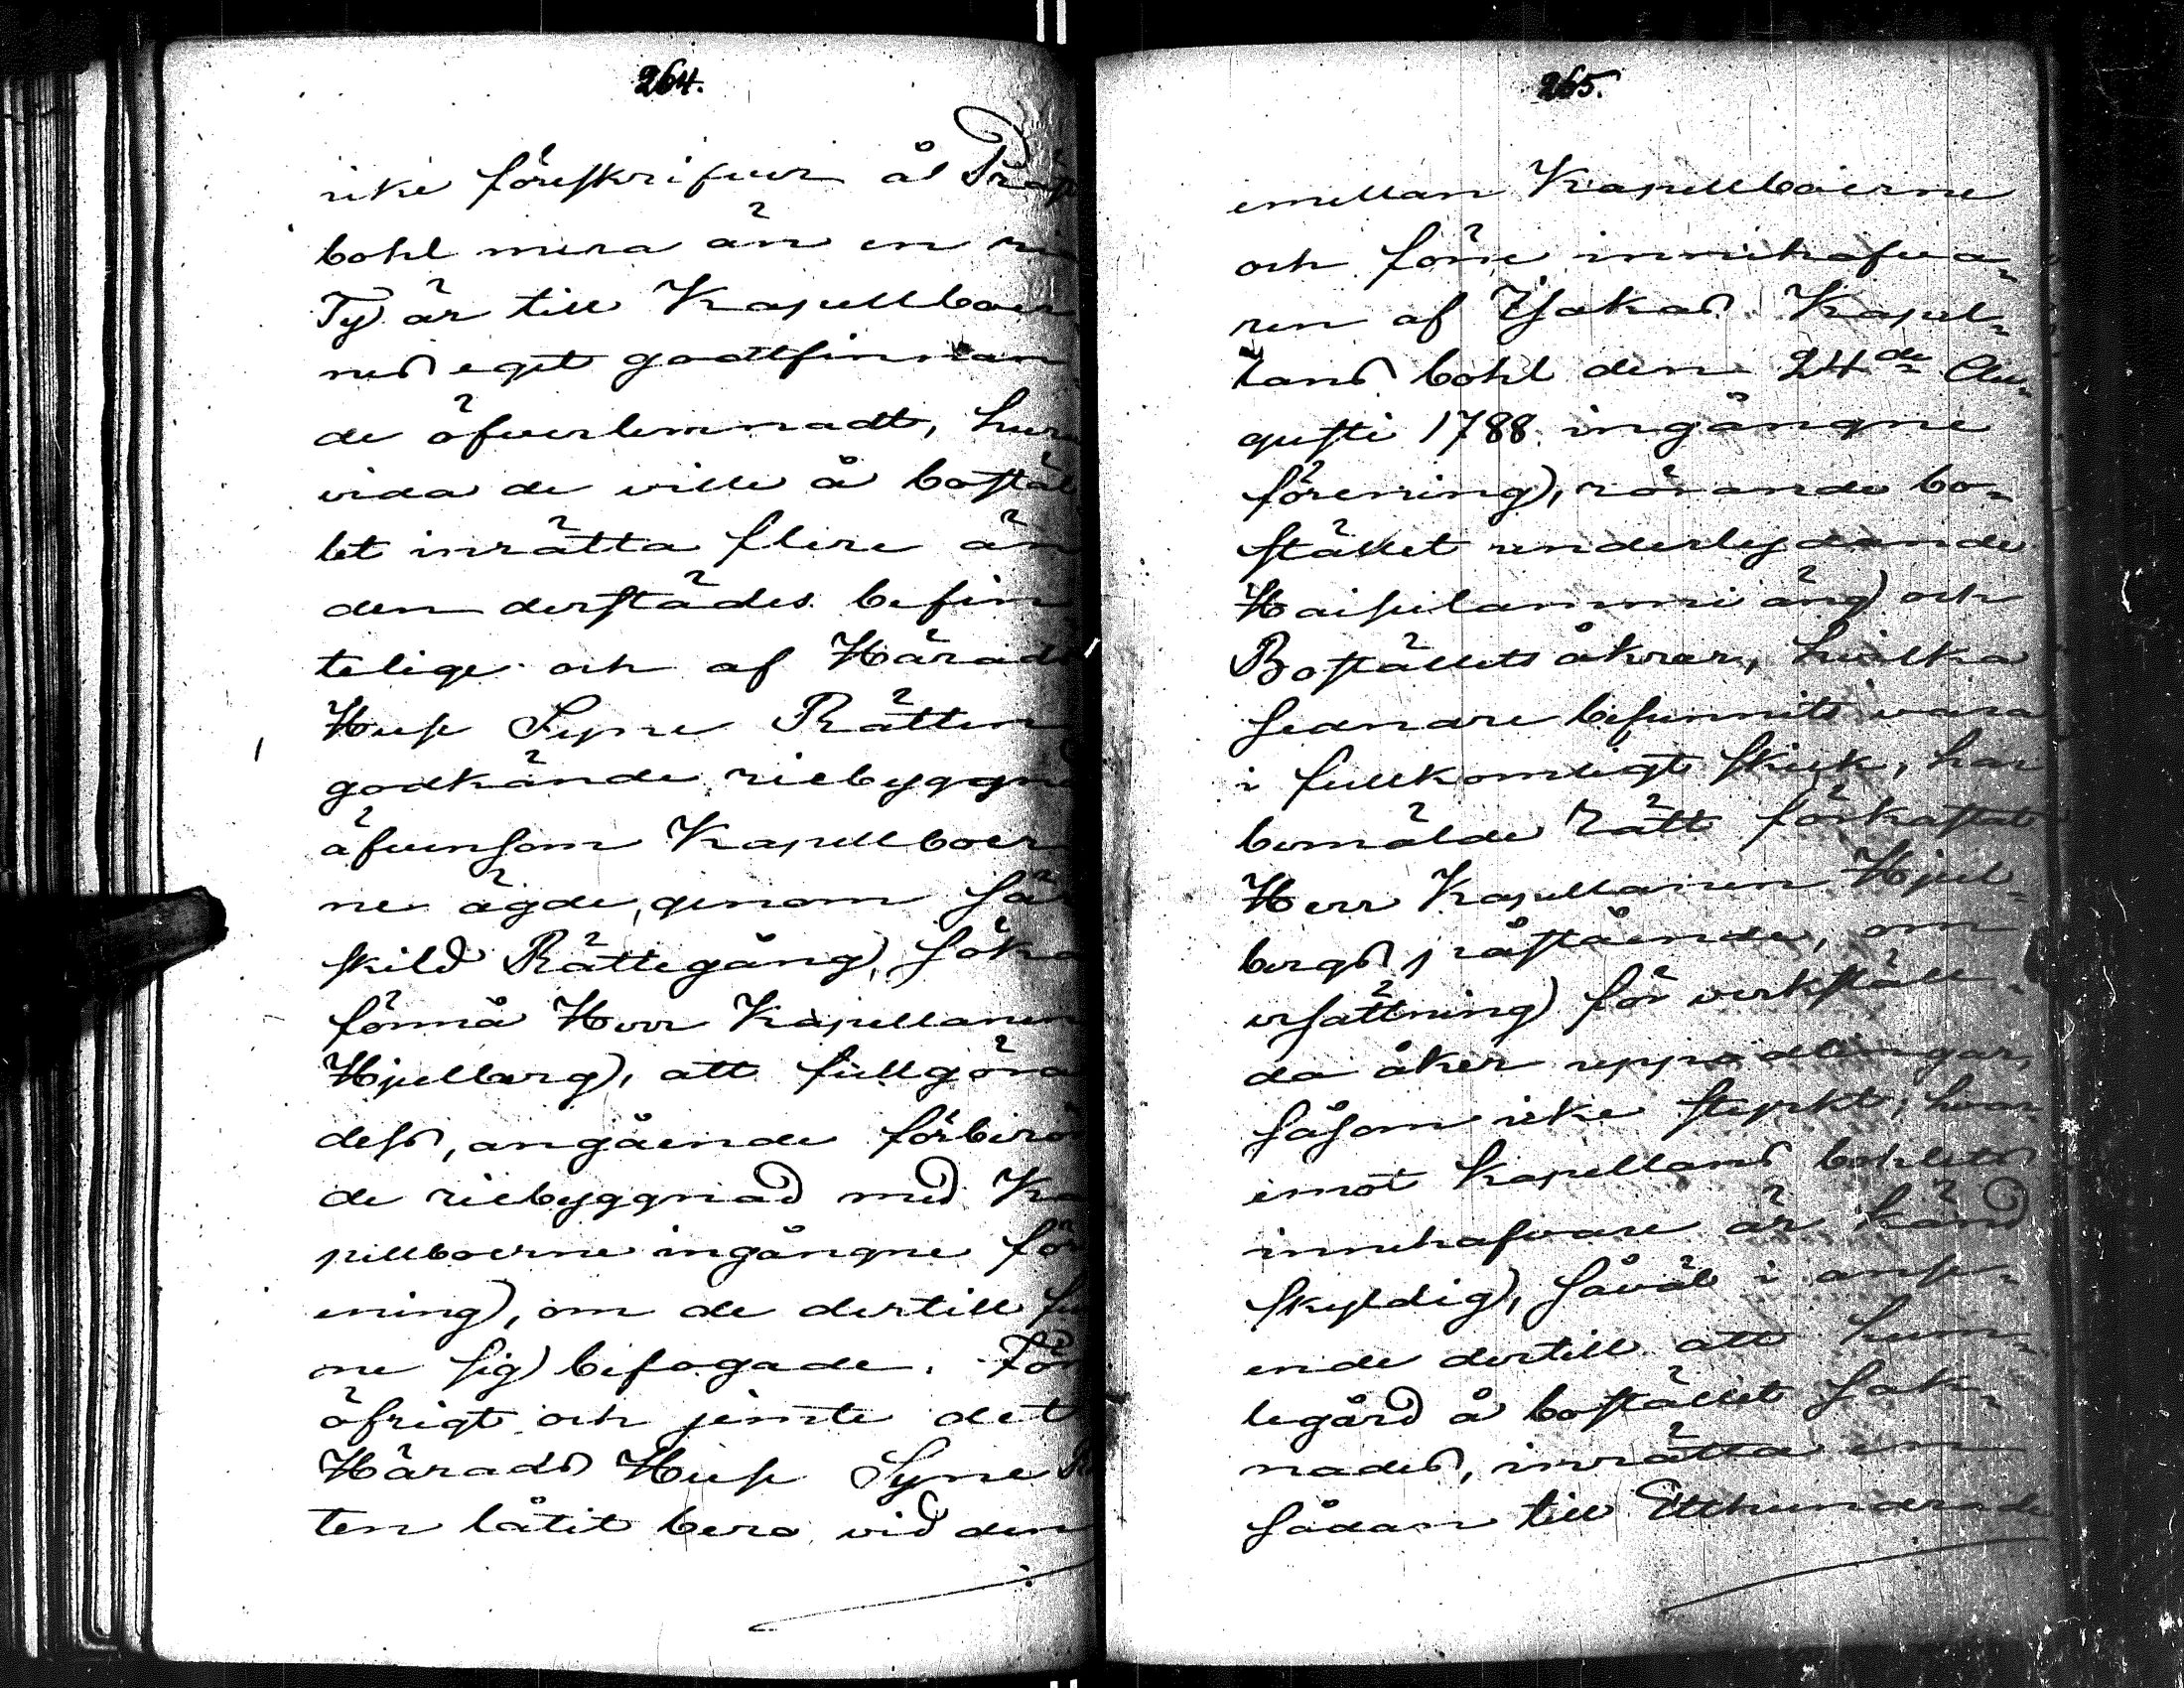 264.
icke föreskrifver å Präst
bohl mera än en ri
Ty är till Kapellboer
nes eget godtfinnan
de öfverlemnadt, huru
vida de ville å bostäl
let inrätta flere än
den derstädes befin
telige och af Härads
Huse Syne Rätten
godkände riebyggn
äfvensom Kapellboer
ne ägde, genom sär
skild Rättegång, söka
förmå Herr Kapellanen
Hjelberg, att fullgöra
dess, angående förberör
de riebyggnad med Ka
pellboerne ingångne för
ening, om de dertill fun
ne sig befogade. För
öfrigt och jemte det
Härads Huse Syne R
ten låtit bero vid den
265.
emellan Kapellboerne
och förre innehafva-
ren af Kapel-
lans bohl den 24de Au-
gusti 1788 ingångne
förening, rörande bo-
stället underlydande
Haisulammi äng och
Boställets åkrar, hvilka
sednare befunnits vara
i fullkomligt skick, har
bemälde Rätt förkastat
Herr Kapellanen Hjel-
bergs påstående, om
ersättning för verkstäl-
da åker uppodlingar,
såsom icke styrkt; hvar-
emot Kapellans bohlets
innehafvare är känd
skyldig, såväl i anse-
ende dertill att hum-
legård å bostället sak-
nades, inrätta en
sådan till Etthundrade